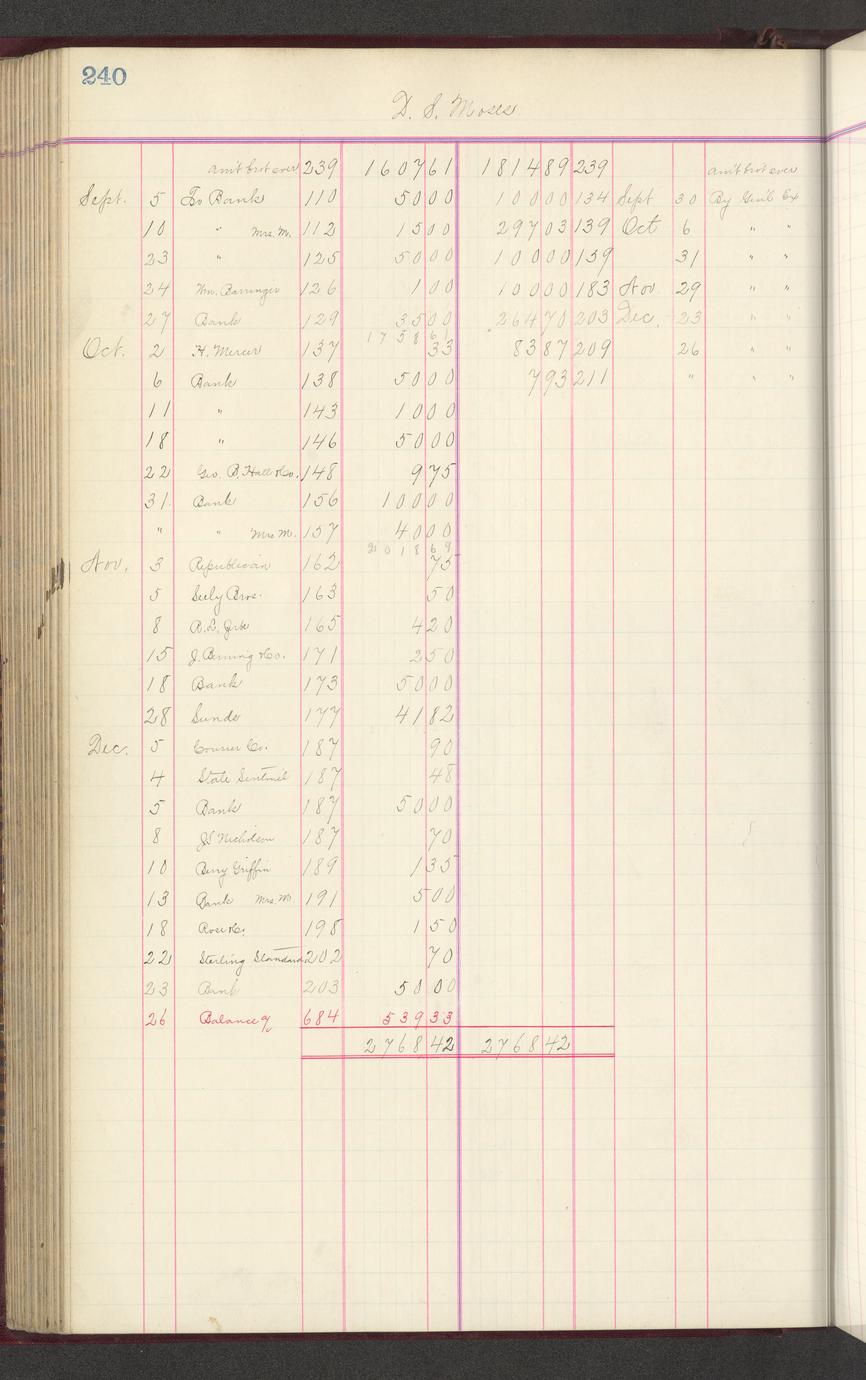 240
D. S. Moses
am't brot over 239 1607 61 1814 89 239 am't brot over
Sept. 5 To Bank 110 50 00 100 00 134 Sept 30 By Gen'l Ex
10 " Mrs. M. 112 15 00 297 03 139 Oct 6 " "
23 " 125 50 00 100 00 159 31 " "
24 Wm. Barringer 126 1 00 100 00 183 Nov 29 " "
27 Bank 129 35 00 264 70 203 Dec. 23 " "
1758 61
Oct. 2 H. Mercer 137 33 83 87 209 26 " "
6 Bank 138 50 00 7 93 211 " " "
11 " 143 10 00
18 " 146 50 00
22 Geo. B. Hall & Co. 148 9 75
31 Bank 156 100 00
" " Mrs M. 157 40 00
2018 69
Nov. 3 Republican 162 75
5 Seely Bros. 163 50
8 165 4 20
15 J. & Co. 171 2 50
18 Bank 173 50 00
28 Sunds 177 41 82
Dec. 5 Courier Co. 187 90
4 State Sentinel 187 48
5 Bank 187 50 00
8 JS Nicholson 187 70
10 Berry Griffin 189 1 35
13 Bank Mrs. M. 191 5 00
18 198 1 50
22 Sterling Standard 202 70
23 Bank 203 50 00
26 Balance 684 539 33
2768 42 2768 42